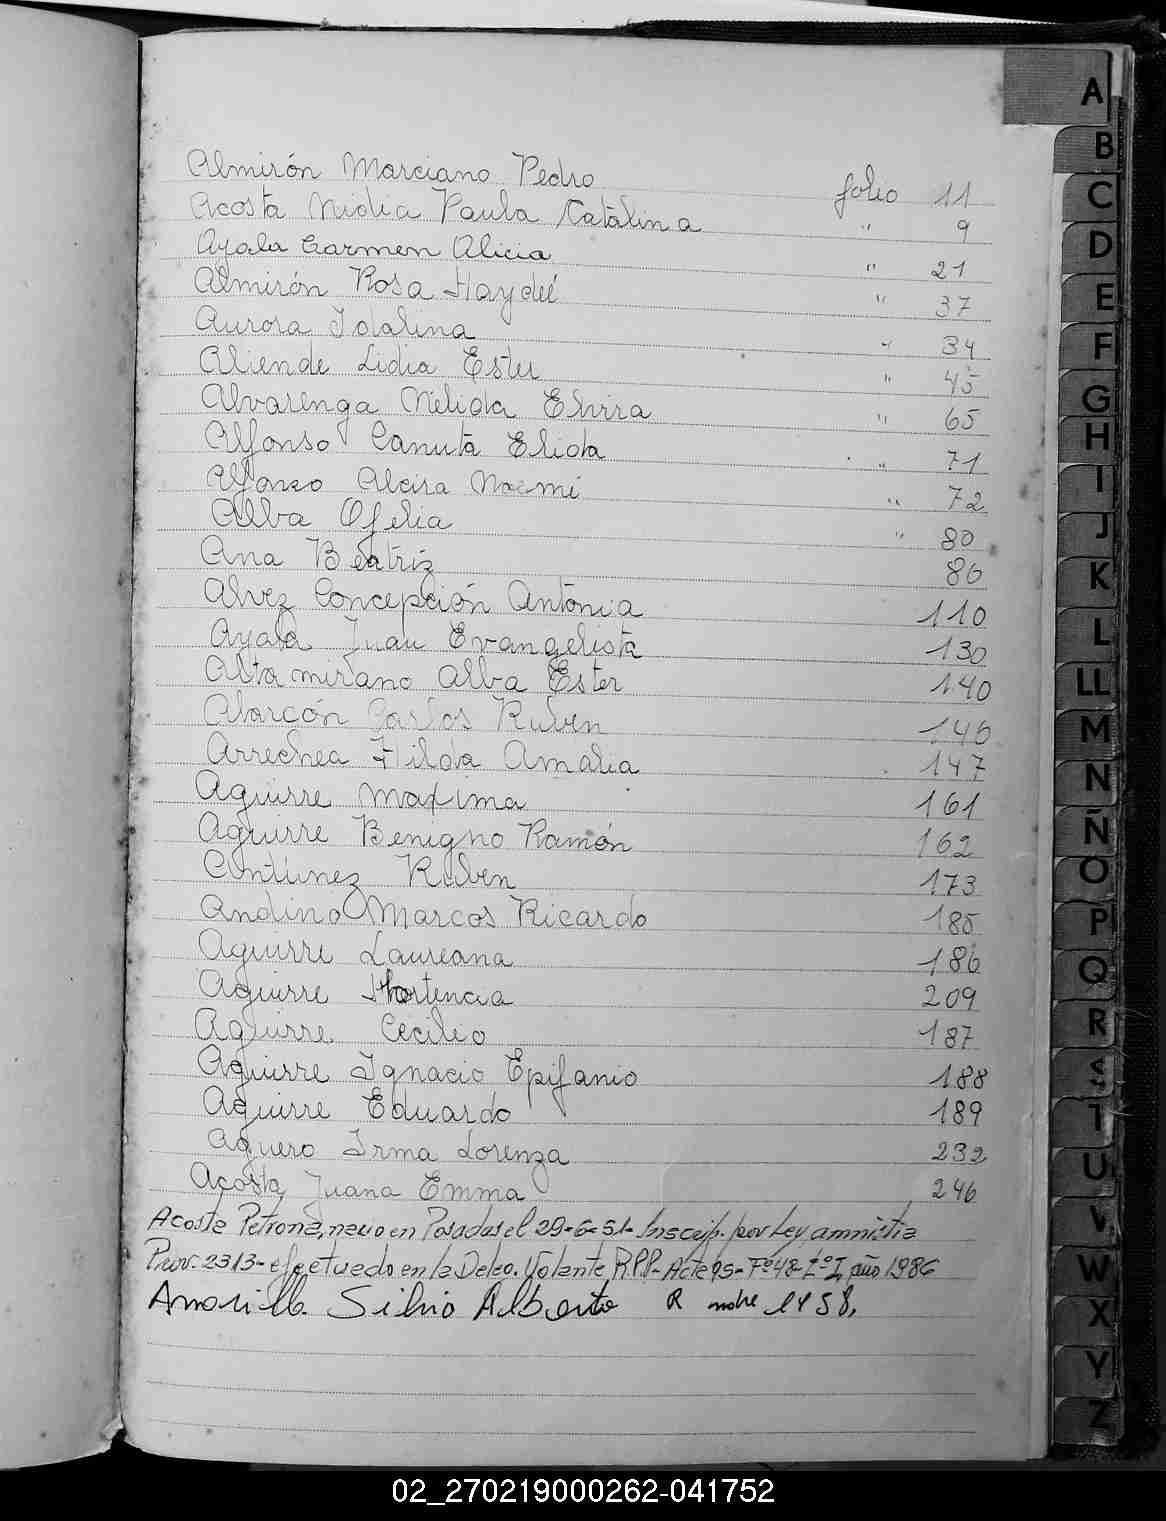 Almirón Marciano Pedro folio 11
Acosta Nidia Paula Catalina " 9
Ayala Carmen Alicia " 21
Almirón Rosa Haydeé " 37
Aurora Idalina " 34
Aliende Lidia Ester " 45
Alvarenga Nélida Elvira " 65
Alfonso Canuta Elida " 71
Alfonzo Alcira Noemí " 72
Alba Ofelia " 80
Ana Beatríz 86
Alvez Concepción Antonia 110
Ayala Juan Evangelista 130
Altamirano Alba Ester 140
Alarcón Carlos Ruben 146
Arrechea Hilda Amalia 147
Aguirre Maxima 161
Aguirre Benigno Ramón 162
Antúnez Ruben 173
Andino Marcos Ricardo 185
Aguirre Laureana 186
Aguirre Hortencia 209
Aguirre Cecilio 187
Aguirre Ignacio Epifanio 188
Aguirre Eduardo 189
Aguero Irma Lorenza 232
Acosta Juana Emma 246
Acosta Petrona, nacio en Posadas el 29-6-51- Inscrip. por Ley amnistia
Prov. 2313- efectuado en la Deleg. Volante R.P.P.- Acta 95- Fº 48- Tº I, año 1986
Silvio Alberto R 1958,
A
B
C
D
E
F
G
H
I
J
K
L
LL
M
N
Ñ
O
P
Q
R
S
T
U
V
W
X
Y
Z
02_270219000262-041752